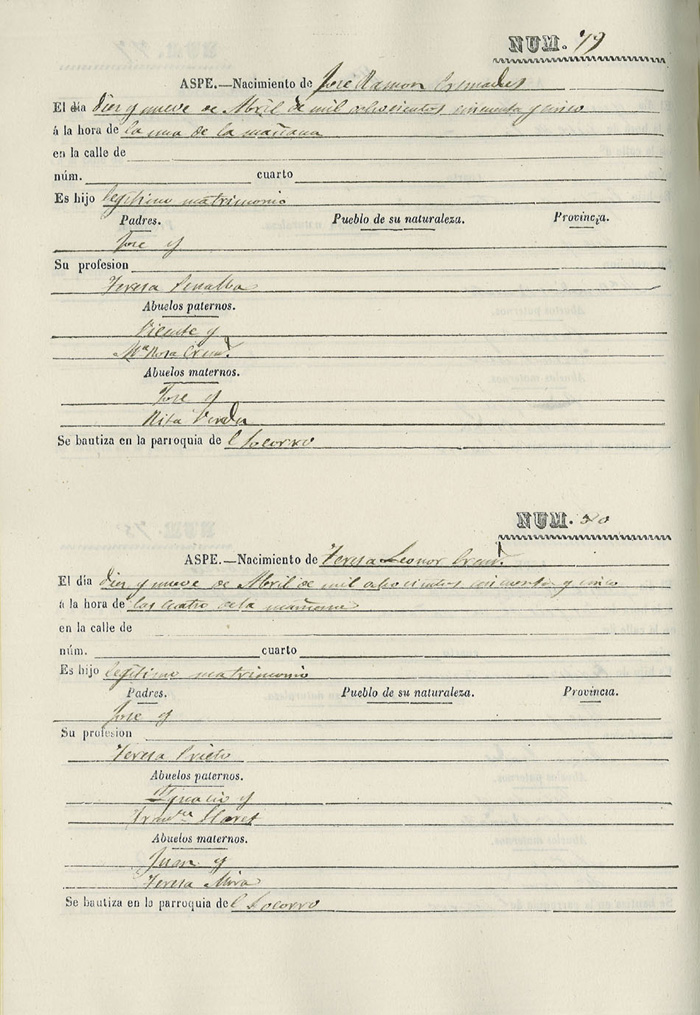 NUM. 79
ASPE.—Nacimiento de Jose Ramon Cremades
El día diez y nueve de Abril de mil ochocientos cincuenta y cinco
á la hora de la una de la mañana
en la calle de
núm. cuarto
Es hijo legitimo matrimonio
Padres. Pueblo de su naturaleza. Provincia.
Jose y
Su profesion
Teresa Penalba
Abuelos paternos.
Vicente y
Mª Rosa Crem.
Abuelos maternos.
Jose y
Rita
Se bautiza en la parroquia del Socorro
NUM. 80
ASPE.—Nacimiento de Teresa Leonor Crem.
El día diez y nueve de Abril de mil ochocientos cincuenta y cinco
á la hora de las cuatro de la mañana
en la calle de
núm. cuarto
Es hijo legitimo matrimonio
Padres. Pueblo de su naturaleza. Provincia.
Jose y
Su profesion
Teresa Prieto
Abuelos paternos.
Ignacio y
Abuelos maternos.
Juan y
Teresa Mira
Se bautiza en la parroquia del Socorro